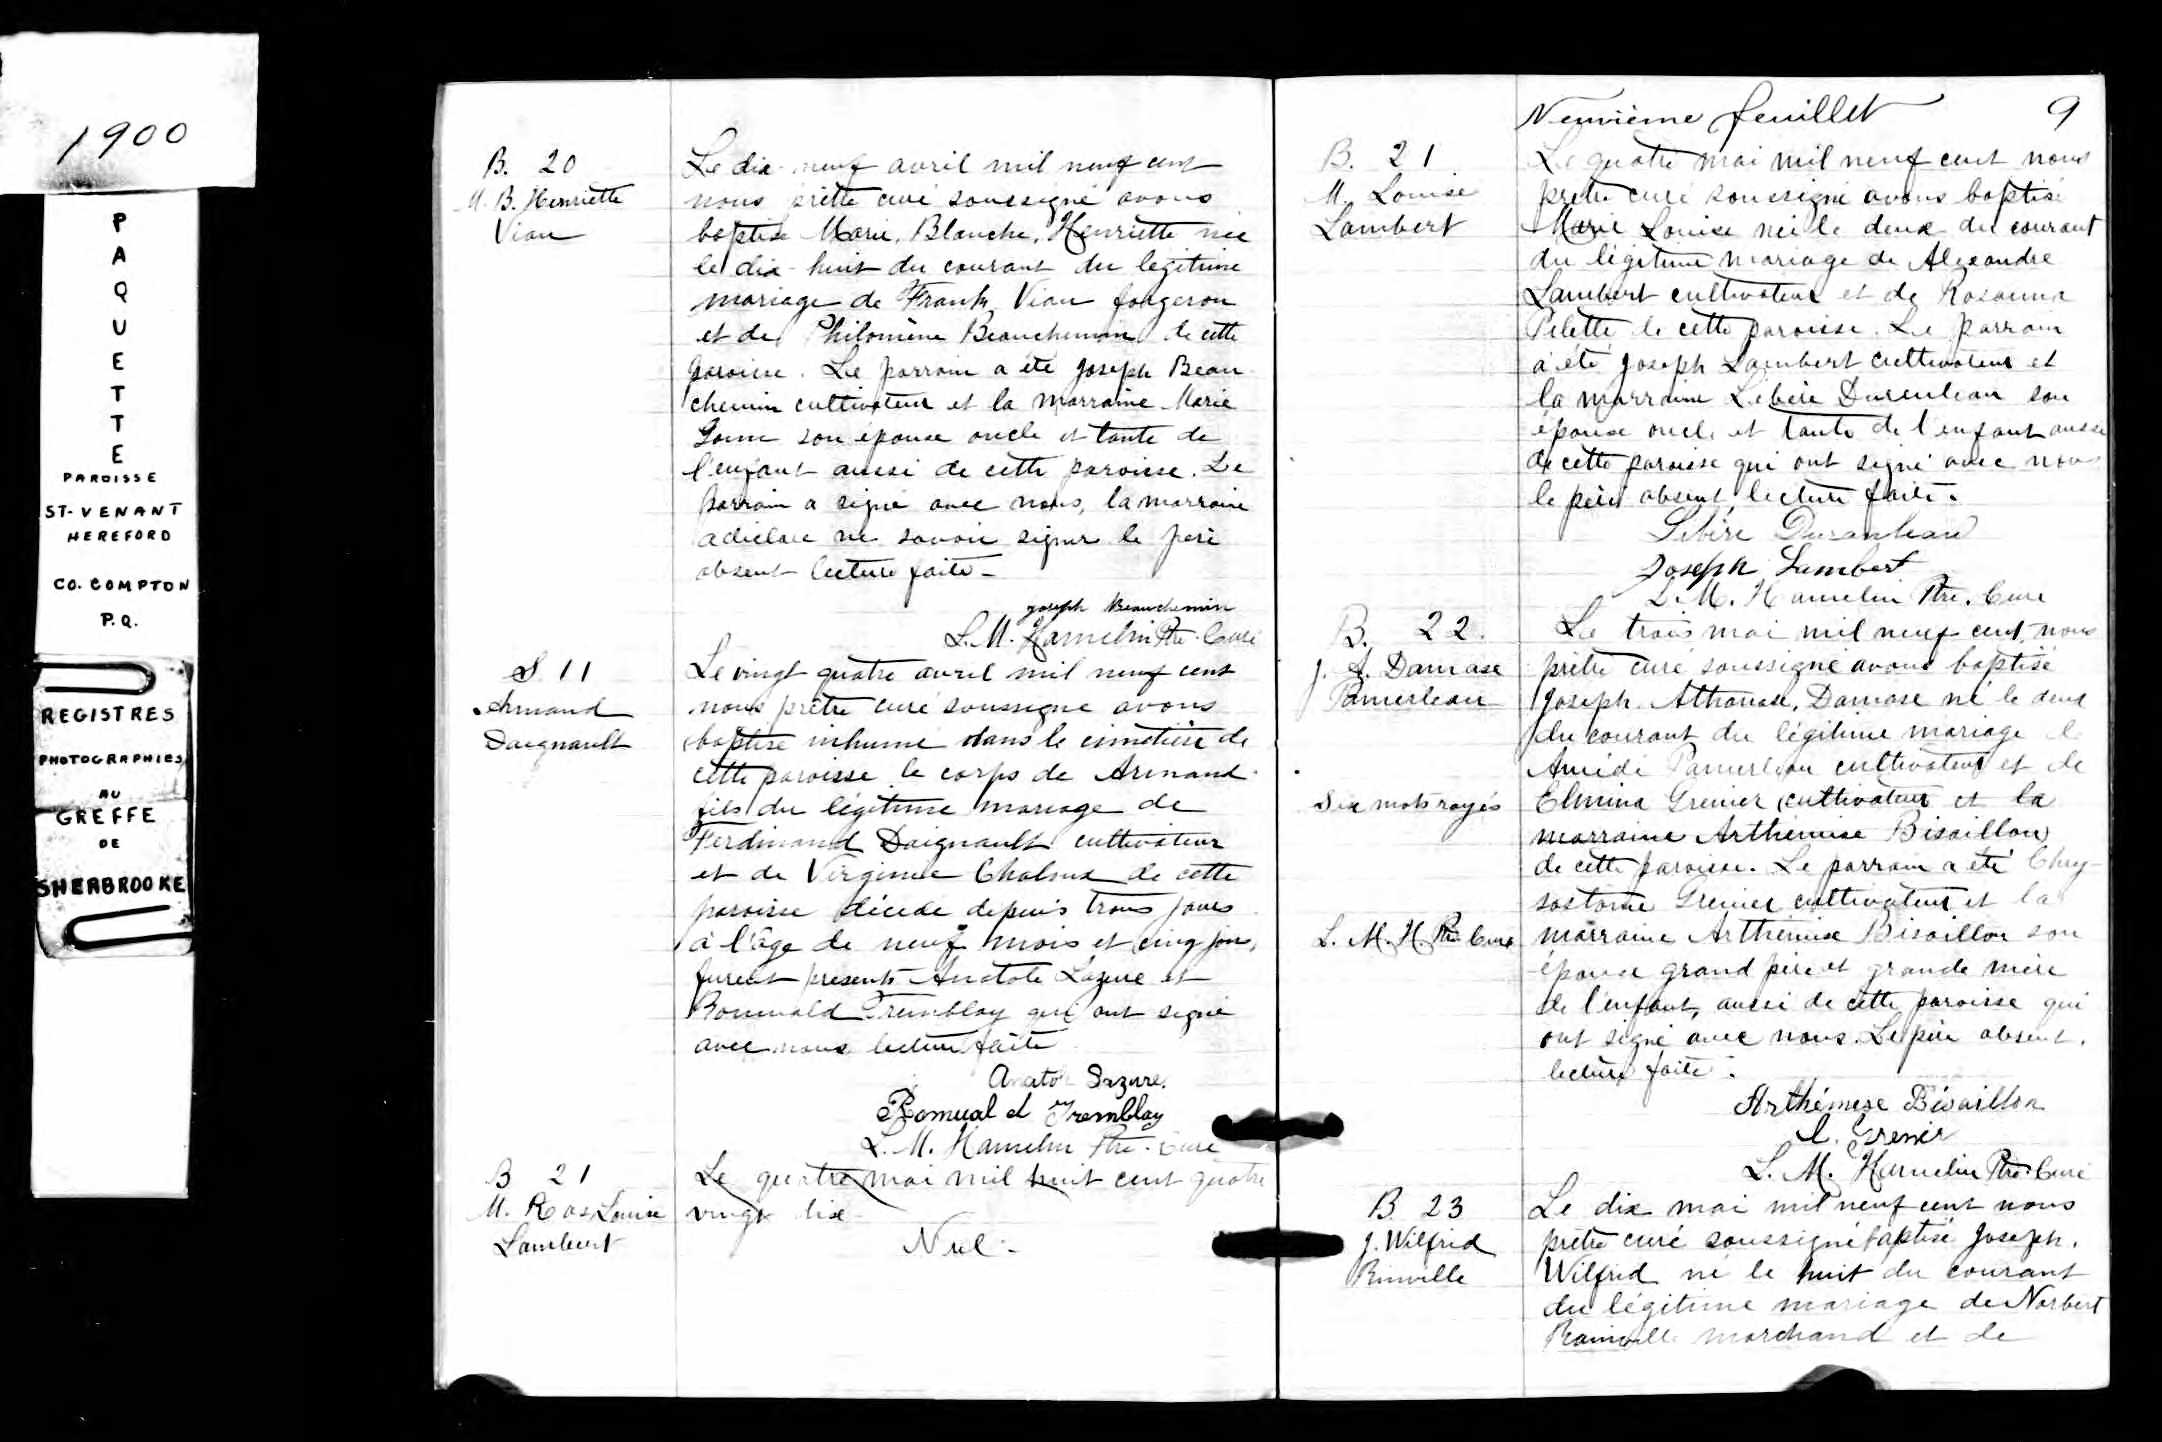 1900
PAQUETTE
PAROISSE
ST-VENANT
HEREFORD
CO. COMPTON
P.Q.
REGISTRES
PHOTOGRAPHIES
AU
GREFFE
DE
SHERBROOKE
B. 20
M. B. Henriette
Viau
Le dix-neuf avril mil neuf cent
nous prêtre curé soussigné avons
baptisé Marie, Blanche, Henriette née
le dix-huit du courant du légitime
mariage de Frank Viau forgeron
et de Philomène Beauchemin de cette
paroisse. Le parrain a été Joseph Beau-
chemin cultivateur et la marraine Marie
son épouse oncle et tante de
l'enfant aussi de cette paroisse. Le
parrain a signé avec nous, la marraine
a déclaré ne savoir signer le père
absent lecture faite-
Joseph Beauchemin
L. M. Hamelin Ptre. Curé
S. 11
Armand
Daignault
Le vingt quatre avril mil neuf cent
nous prêtre curé soussigné avons
baptisé inhumé dans le cimetière de
cette paroisse le corps de Armand
fils du légitime mariage de
Ferdinand Daignault cultivateur
et de Virginie Chaloux de cette
paroisse décédé depuis trois jours
à l'âge de neuf mois et cinq jrs,
furent présents Anatole Lazure et
Romuald Tremblay qui ont signé
avec nous lecture faite
Anatole Lazure.
Romuald Tremblay
L. M. Hamelin Ptre. Curé
B 21
M. Ros Louise
Lambert
Le quatre mai mil huit cent quatre
vingt dix-
Nul-
Neuvième feuillet 9
B. 21
M. Louise
Lambert
Le quatre mai mil neuf cent nous
prêtre curé soussigné avons baptisé
Marie Louise née le deux du courant
du légitime mariage de Alexandre
Lambert cultivateur et de Rosanna
de cette paroisse. Le parrain
a été Joseph Lambert cultivateur et
la marraine Libère Duranleau son
épouse oncle et tante de l'enfant aussi
de cette paroisse qui ont signé avec nous
le père absent, lecture faite.
Libère Duranleau
Joseph Lambert
L. M. Hamelin Ptre. Curé
B. 22.
J. A. Damase
Pamerleau
Le trois mai mil neuf cent, nous
prêtre curé soussigné avons baptisé
Joseph, Athanase, Damase né le deux
du courant du légitime mariage de
Amédé Pamerleau cultivateur et de
Elmina Grenier cultivateur et la
marraine Arthémise Bisaillon
Six mots rayés
de cette paroisse. Le parrain a été Chry-
sostome Grenier cultivateur et la
L. M. H. Ptre Curé
marraine Arthémise Bisaillon son
épouse grand père et grande mère
de l'enfant, aussi de cette paroisse qui
ont signé avec nous. Le père absent.
lecture faite.
Arthémese Bisaillon
C. Grenier
L. M. Hamelin Ptre. Curé
B. 23
J. Wilfrid
Rinville
Le dix mai mil neuf cent nous
prêtre curé soussigné baptisé Joseph.
Wilfrid né le huit du courant
du légitime mariage de Norbert
Rainville marchand et de